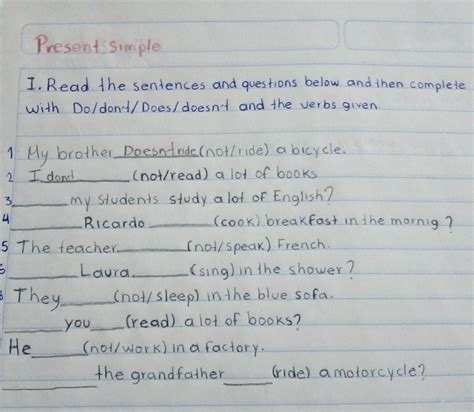 Present Simple
I. Read the sentences and questions below and then complete
with Do/don't/Does/doesn't and the verbs given
1 My brother Doesn't ride (not/ride) a bicycle.
2 I don't ______ (not/read) a lot of books
3 ______ my students study a lot of English?
4 ______ Ricardo ______ (cook) breakfast in the mornig ?
5 The teacher ______ (not/speak) French.
______ Laura ______ (sing) in the shower?
They ______ (not/sleep) in the blue sofa.
______ you ____ (read) a lot of books?
He ______ (not/work) in a factory.
______ the grandfather ____ (ride) a motorcycle?